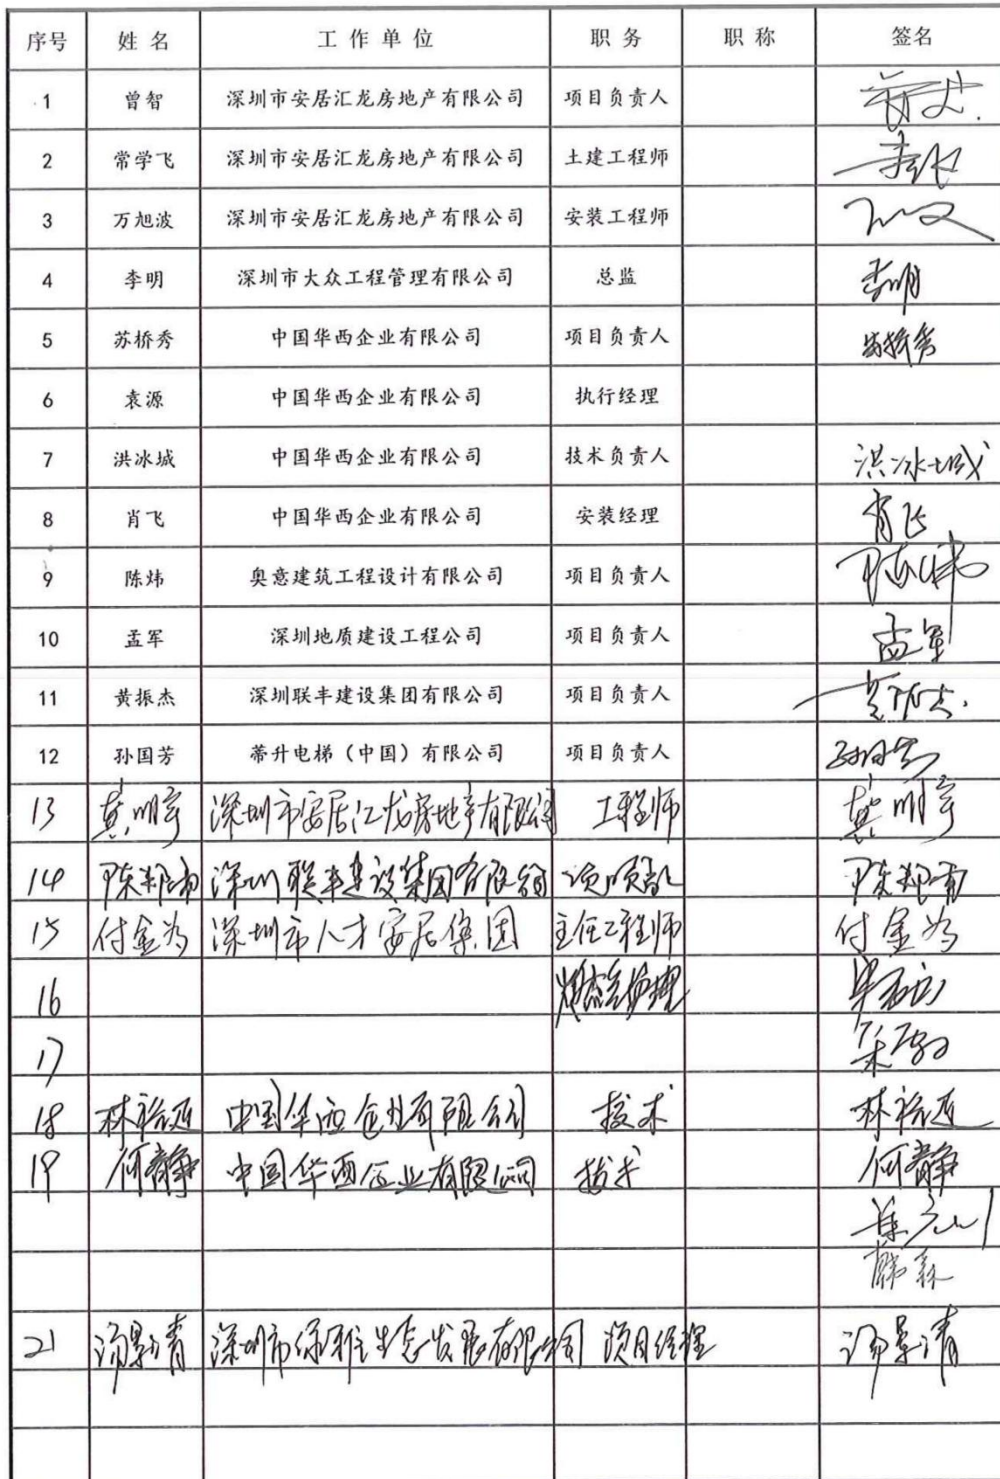 序号 姓名 工作单位 职务 职称 签名
1 曾智 深圳市安居汇龙房地产有限公司 项目负责人
2 常学飞 深圳市安居汇龙房地产有限公司 土建工程师
3 万旭波 深圳市安居汇龙房地产有限公司 安装工程师
4 李明 深圳市大众工程管理有限公司 总监 李明
5 苏桥秀 中国华西企业有限公司 项目负责人 苏桥秀
6 袁源 中国华西企业有限公司 执行经理
7 洪冰城 中国华西企业有限公司 技术负责人 洪冰城
8 肖飞 中国华西企业有限公司 安装经理 肖飞
9 陈炜 奥意建筑工程设计有限公司 项目负责人 陈炜
10 孟军 深圳地质建设工程公司 项目负责人 孟军
11 黄振杰 深圳联丰建设集团有限公司 项目负责人 黄振杰
12 孙国芳 蒂升电梯（中国）有限公司 项目负责人 孙国芳
13 明宇 深圳市安居汇龙房地产有限公司 工程师 明宇
14 陈 深圳联丰建设集团有限公司 陈
15 付金为 深圳市人才安居集团 主任工程师 付金为
16
17
18 林裕延 中国华西企业有限公司 技术 林裕延
19 何静 中国华西企业有限公司 技术 何静
21 汤景清 深圳市 生态发展有限公司 项目经理 汤景清